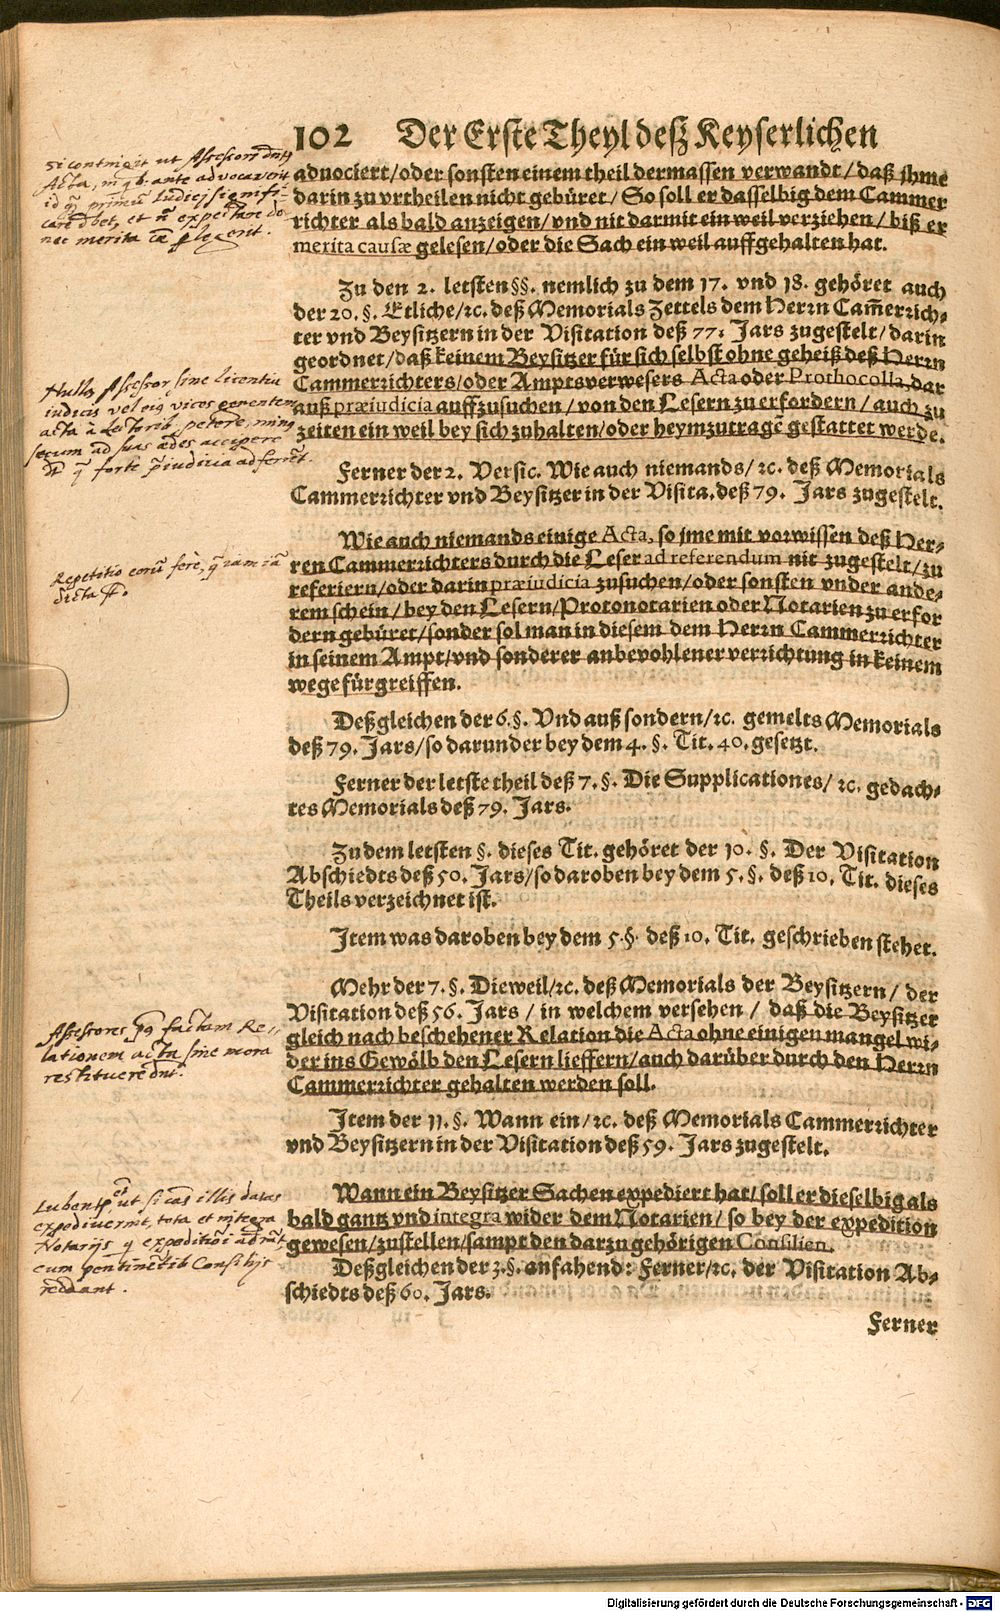 102 Der Erste Theyl deß Keyserlichen
aduociert/oder sonsten einem theil dermassen verwandt/daß ihme
darin zu vrtheilen nicht gebüret/So soll er dasselbig dem Cammer
richter als bald anzeigen/vnd nit darmit ein weil verziehen/biß er
merita causæ gelesen/oder die Sach ein weil auffgehalten hat.
Si contingit ut Assessori dentur
Acta, in quib. ante advocaverit
id primum Iudici signifi-
care debet, et expectare do-
nec merita perlegerit.
Zu den 2. letsten §§. nemlich zu dem 17. vnd 18. gehöret auch
der 20. §. Etliche/ꝛc. deß Memorials Zettels dem Herrn Cam̃errich-
ter vnd Beysitzern in der Visitation deß 77. Jars zugestelt/darin
geordnet/daß keinem Beysitzer für sich selbst ohne geheiß deß Herrn
Cammerrichters/oder Amptsverwesers Acta oder Prothocolla, dar
auß præiudicia auffzusuchen/von den Lesern zu erfordern/auch zu
zeiten ein weil bey sich zuhalten/oder heymzutragẽ gestattet werde.
Nullus Assessor sine licentia
iudicis vel eius vices gerentem
acta à Lectorib. petere,
secum ad suas ædes accipere
forte præiudicia
Ferner der 2. Versic. Wie auch niemands/ꝛc. deß Memorials
Cammerrichter vnd Beysitzer in der Visita. deß 79. Jars zugestelt.
Wie auch niemands einige Acta, so jme mit vorwissen deß Her-
ren Cammerrichters durch die Leser ad referendum nit zugestelt/zu
referiern/oder darin præiudicia zusuchen/oder sonsten vnder ande-
rem schein/bey den Lesern/Protonotarien oder Notarien zu erfor
dern gebüret/sonder sol man in diesem dem Herrn Cammerrichter
in seinem Ampt/vnd sonderer anbevohlener verrichtung in keinem
wege fürgreiffen.
Repetitio eorũ ferè, iam
dicta
Deßgleichen der 6. §. Vnd auß sondern/ꝛc. gemelts Memorials
deß 79. Jars/so darunder bey dem 4. §. Tit. 40. gesetzt.
Ferner der letste theil deß 7. §. Die Supplicationes/ꝛc. gedach-
tes Memorials deß 79. Jars.
Zu dem letsten §. dieses Tit. gehöret der 10. §. Der Visitation
Abschiedts deß 50. Jars/so daroben bey dem 5. §. deß 10. Tit. dieses
Theils verzeichnet ist.
Item was daroben bey dem 5. §. deß 10. Tit. geschrieben stehet.
Mehr der 7. §. Dieweil/ꝛc. deß Memorials der Beysitzern/der
Visitation deß 56. Jars/in welchem versehen/daß die Beysitzer
gleich nach beschehener Relation die Acta ohne einigen mangel wi-
der ins Gewölb den Lesern lieffern/auch darüber durch den Herrn
Cammerrichter gehalten werden soll.
Assessores factam Re-
lationem acta sine mora
restituere
Item der 11. §. Wann ein/ꝛc. deß Memorials Cammerrichter
vnd Beysitzern in der Visitation deß 59. Jars zugestelt.
Wann ein Beysitzer Sachen expediert hat/soll er dieselbig als
bald gantz vnd integra wider dem Notarien/so bey der expedition
gewesen/zustellen/sampt den darzu gehörigen Consilien.
ut si illis datas
expediverint, tota et integra
Notarijs
cum Consilijs
reddant.
Deßgleichen der 3. §. anfahend: Ferner/ꝛc. der Visitation Ab-
schiedts deß 60. Jars.
Ferner
Digitalisierung gefördert durch die Deutsche Forschungsgemeinschaft - DFG